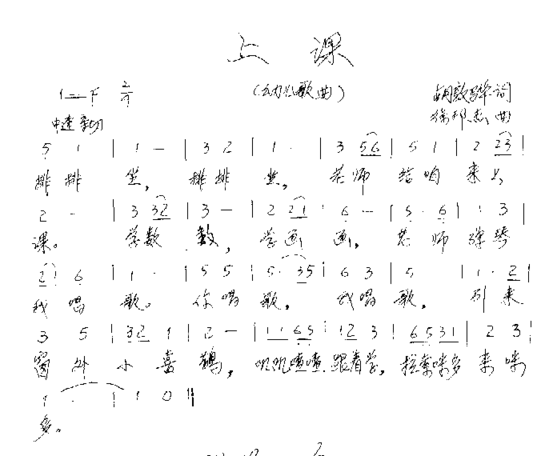 上 课
(幼儿歌曲)
1=F 2/4
中速 亲切
5 1 | 1 - | 3 2 | 1 · | 3 56 | 5 1 | 2 23 |
排排 坐, 排排 坐, 老师 给咱 来上
2 - | 3 32 | 3 - | 2 21 | 6 - | 5 · 6 | 1 · 3 |
课。 学数 数, 学画 画, 老师 弹琴
2 6 | 1 · | 5 5 | 5 · 35 | 6 3 | 5 | 1 · 2 |
我唱 歌。 你唱 歌, 我唱 歌, 引来
3 5 | 32 1 | 2 - | 1165 | 12 3 | 6531 | 2 3 |
窗外 小喜 鹊, 叽叽喳喳 跟着学, 拉索咪多 来咪
1 · | 1 0 ‖
多。